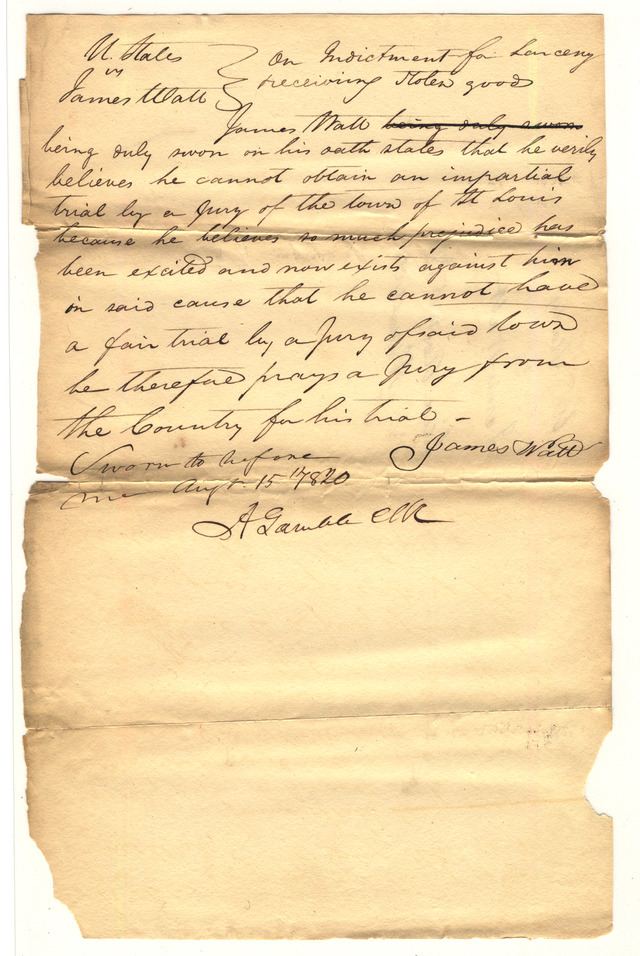 U. States
vs
James Watt
On Indictment for Larceny
& receiving Stolen goods
James Watt being duly sworn
being duly sworn on his oath states that he verily
believes he cannot obtain an impartial
trial by a Jury of the town of St Louis
because he believes so much prejudice has
been excited and now exists against him
in said cause that he cannot have
a fair trial by a Jury of said town
he therefore prays a Jury from
the Country for his trial -
James Watt
Sworn to before
me Augt. 15th 1820
A Gamble Clk